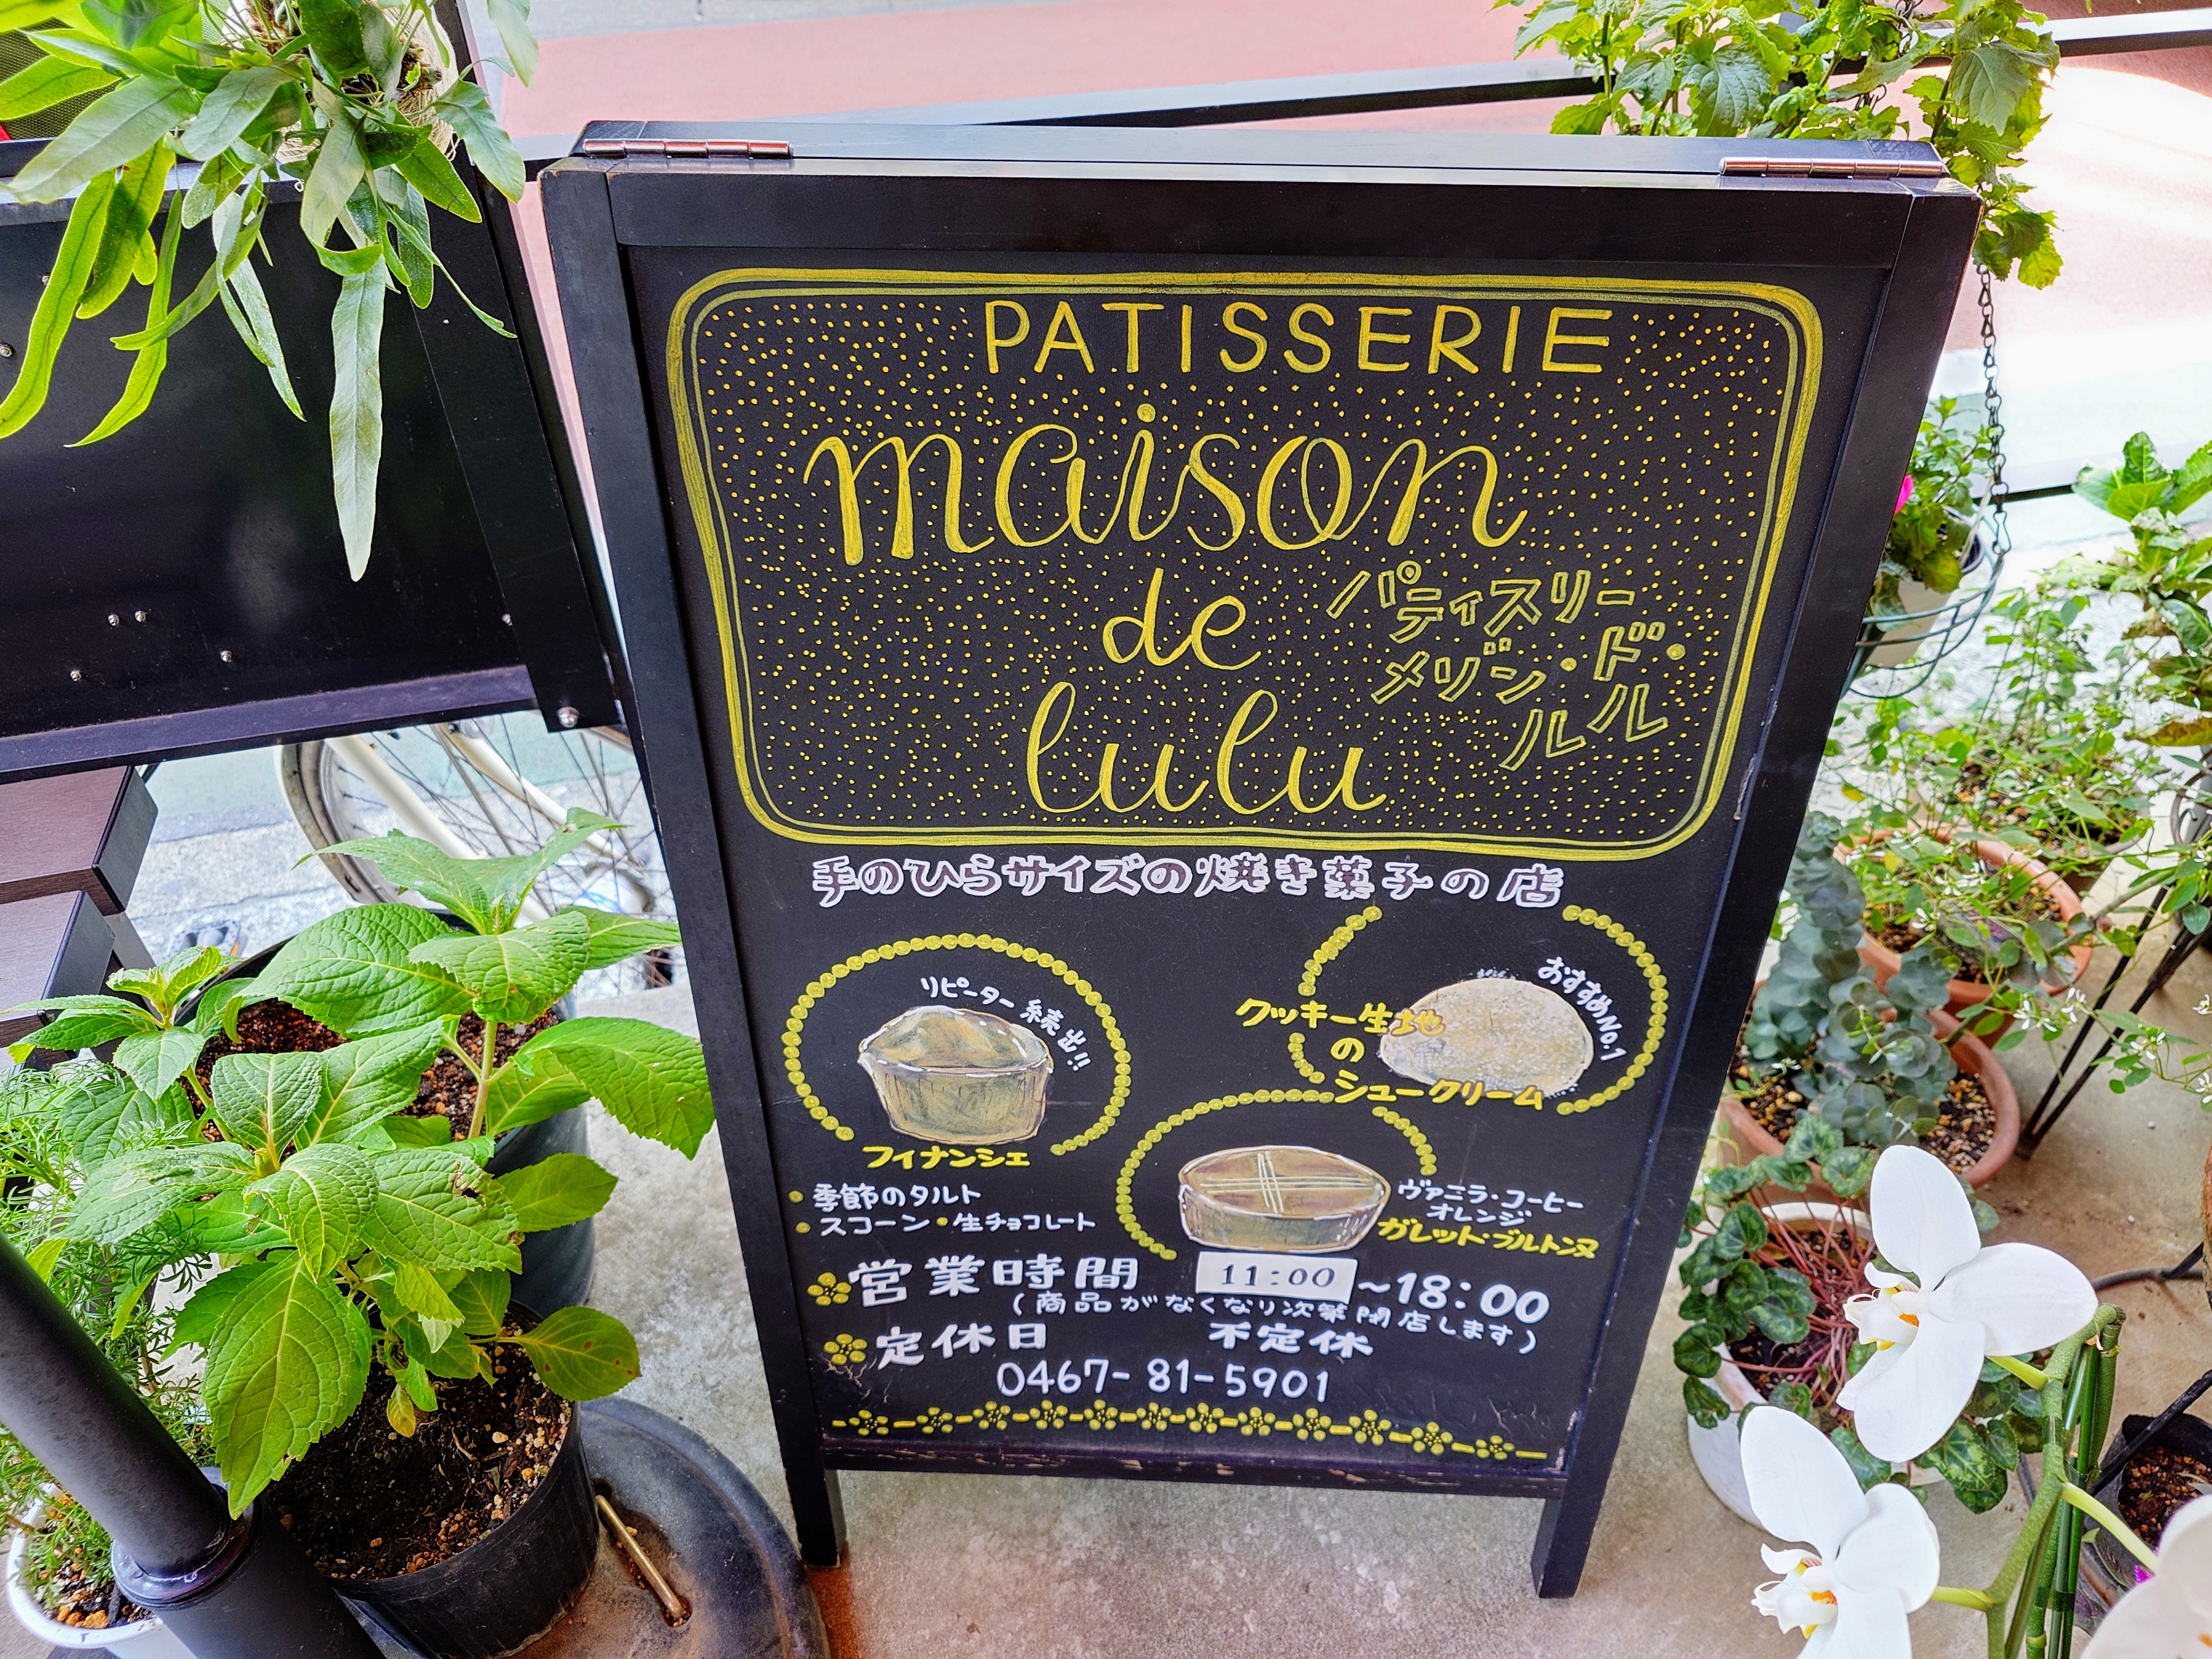 PATISSERIE
maison
de
lulu
パティスリー
メゾン・ド・
ルル
手のひらサイズの焼き菓子の店
リピーター続出!!
フィナンシェ
おすすめNo.1
クッキー生地
の
シュークリーム
・季節のタルト
・スコーン・生チョコレート
ヴァニラ・コーヒー
オレンジ
ガレット・ブルトンヌ
営業時間 11:00~18:00
(商品がなくなり次第閉店します)
定休日 不定休
0467-81-5901